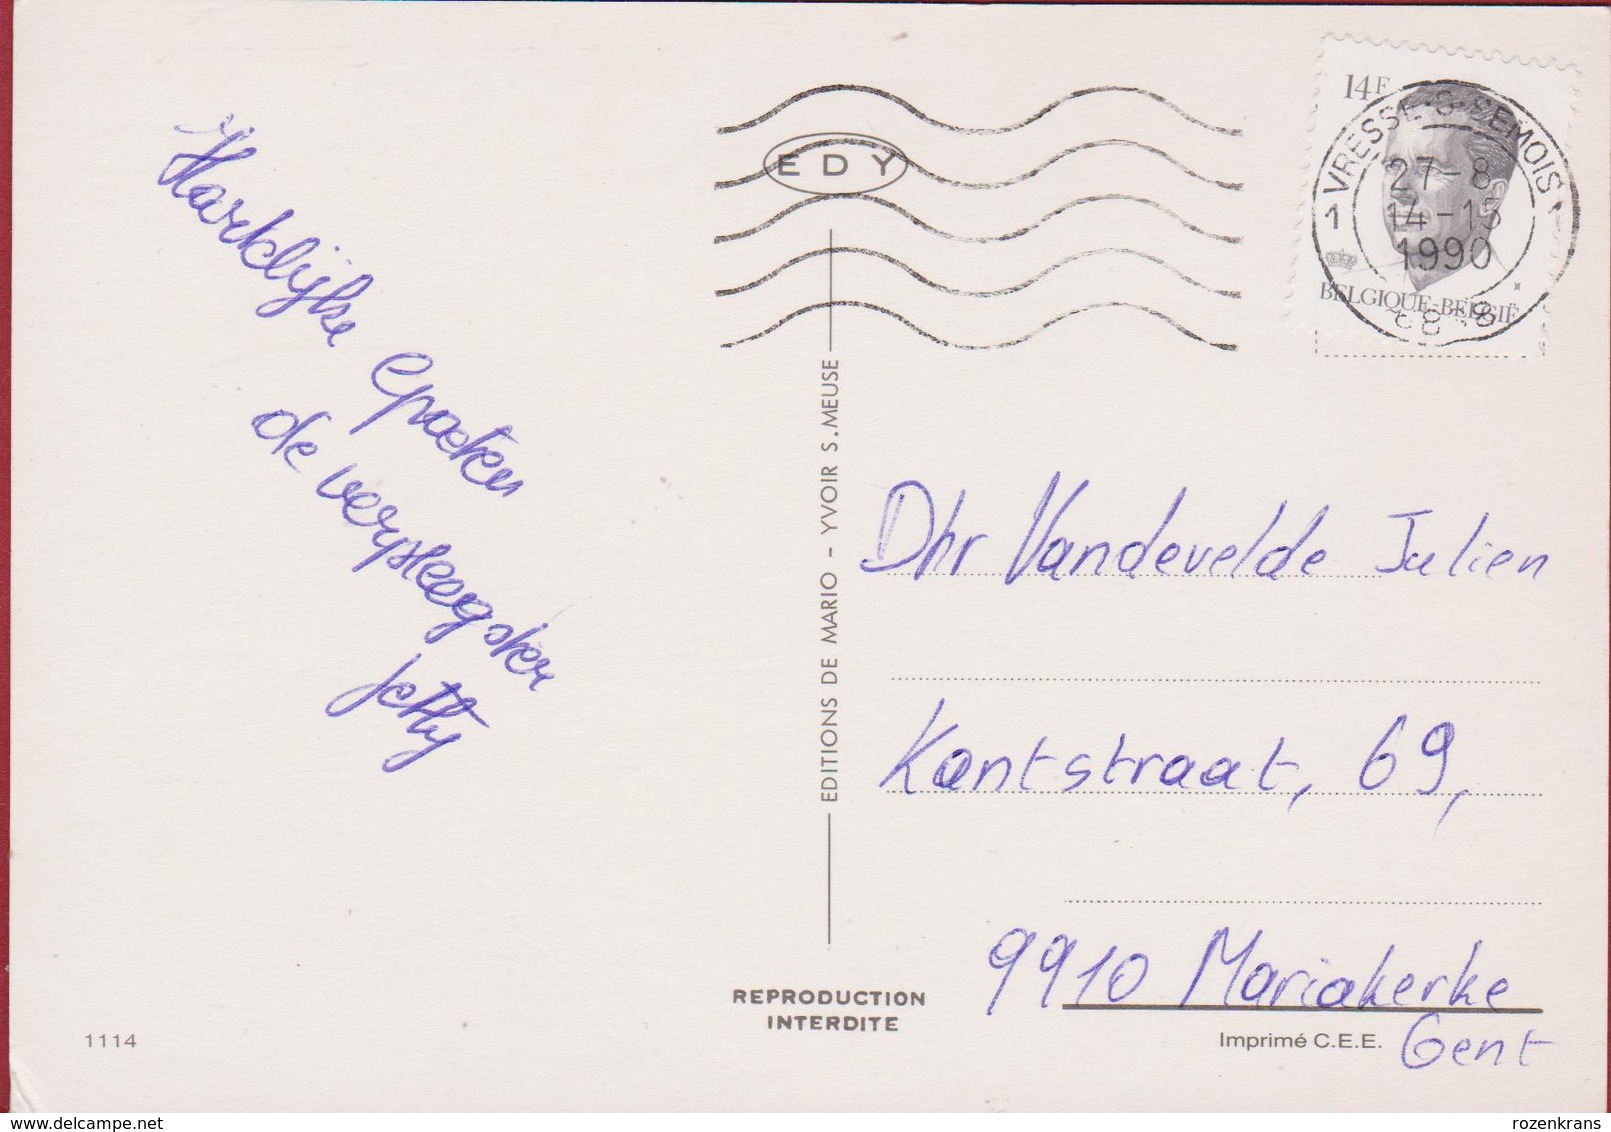 Harklijke Groeten
de verpleegster
Jetty
EDY
EDITIONS DE MARIO - YVOIR S.MEUSE
REPRODUCTION
INTERDITE
1114
14F
BELGIQUE-BELGIË
1 VRESSE-S-SEMOIS 1
27-8
14-15
1990
Dhr Vandevelde Julien
Kantstraat, 69,
9910 Mariakerke
Gent
Imprimé C.E.E.
rozenkrans